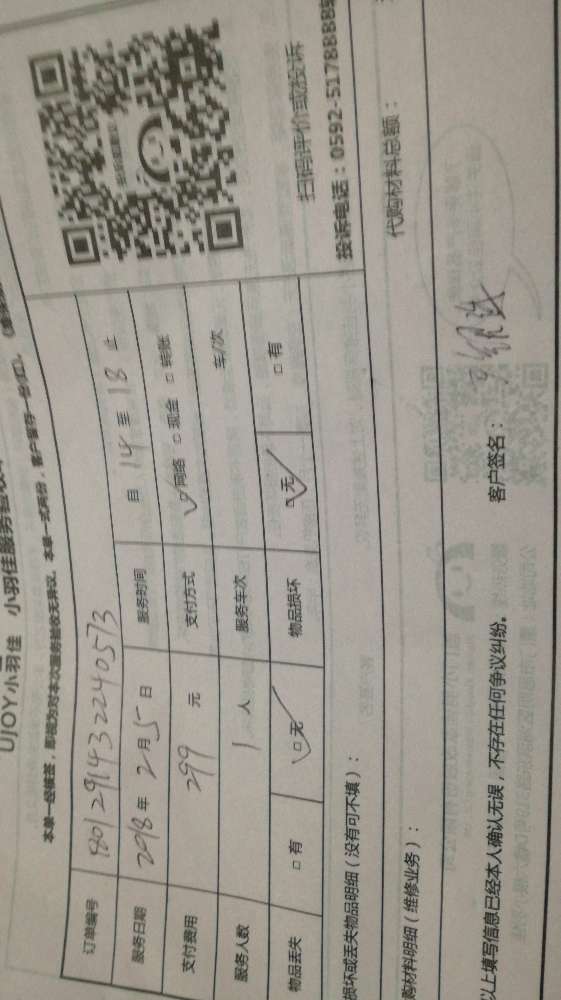 UJOY小羽佳 小羽佳服务验收单
本单一经核签，即视为对本次服务验收无异议。本单一式两份，客户留存一份
订单编号 1801291432240573
服务日期 2018年2月5日 服务时间 自14至18止
支付费用 299元 支付方式 ☑网络 □现金 □转账
服务人数 1人 服务车次 车/次
物品丢失 □有 ☑无 物品损坏 ☑无 □有
扫码评价或投诉
投诉电话：0592-5178888
损坏或丢失物品明细（没有可不填）：
购材料明细（维修业务）： 代购材料总额：
以上填写信息已经本人确认无误，不存在任何争议纠纷。 客户签名：